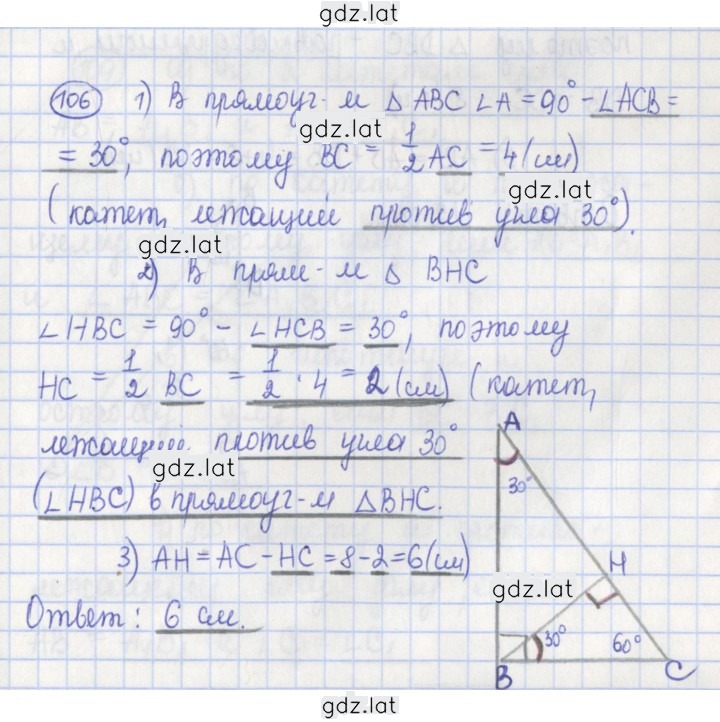 gdz.lat
106 1) В прямоуг-м △ ABC ∠A = 90° - ∠ACB =
gdz.lat
= 30°, поэтому BC = 1/2 AC = 4 (см)
gdz.lat
(катет, лежащий против угла 30°).
gdz.lat
2) В прям-м △ BHC
∠HBC = 90° - ∠HCB = 30°, поэтому
HC = 1/2 BC = 1/2 · 4 = 2 (см) (катет,
лежащий против угла 30°
gdz.lat
(∠HBC) в прямоуг-м △BHC.
3) AH = AC - HC = 8 - 2 = 6 (см)
Ответ: 6 см.
A
30°
H
gdz.lat
30°
60°
B
C
gdz.lat